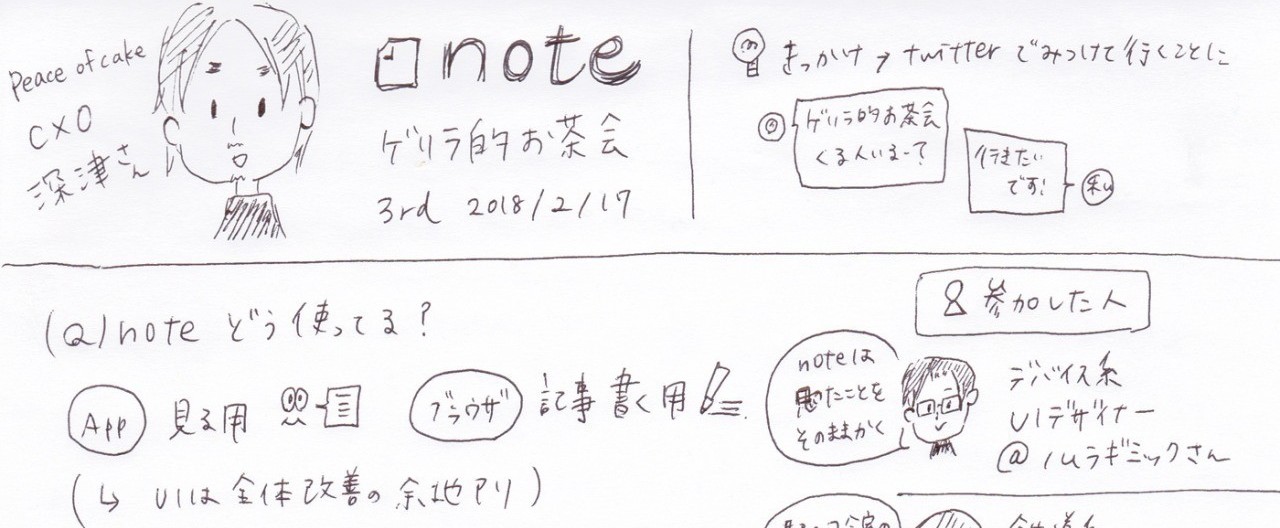 Peace of cake
CXO
深津さん
note
ゲリラ的お茶会
3rd 2018/2/17
きっかけ → twitterでみつけて行くことに
ゲリラ的お茶会
くる人いるー?
行きたい
です!
私
(Q) note どう使ってる?
App 見る用
ブラウザ 記事書く用
(↳ UIは全体改善の余地アリ)
参加した人
noteは
思たことを
そのままかく
デバイス系
UIデザイナー
@ノムラギミックさん